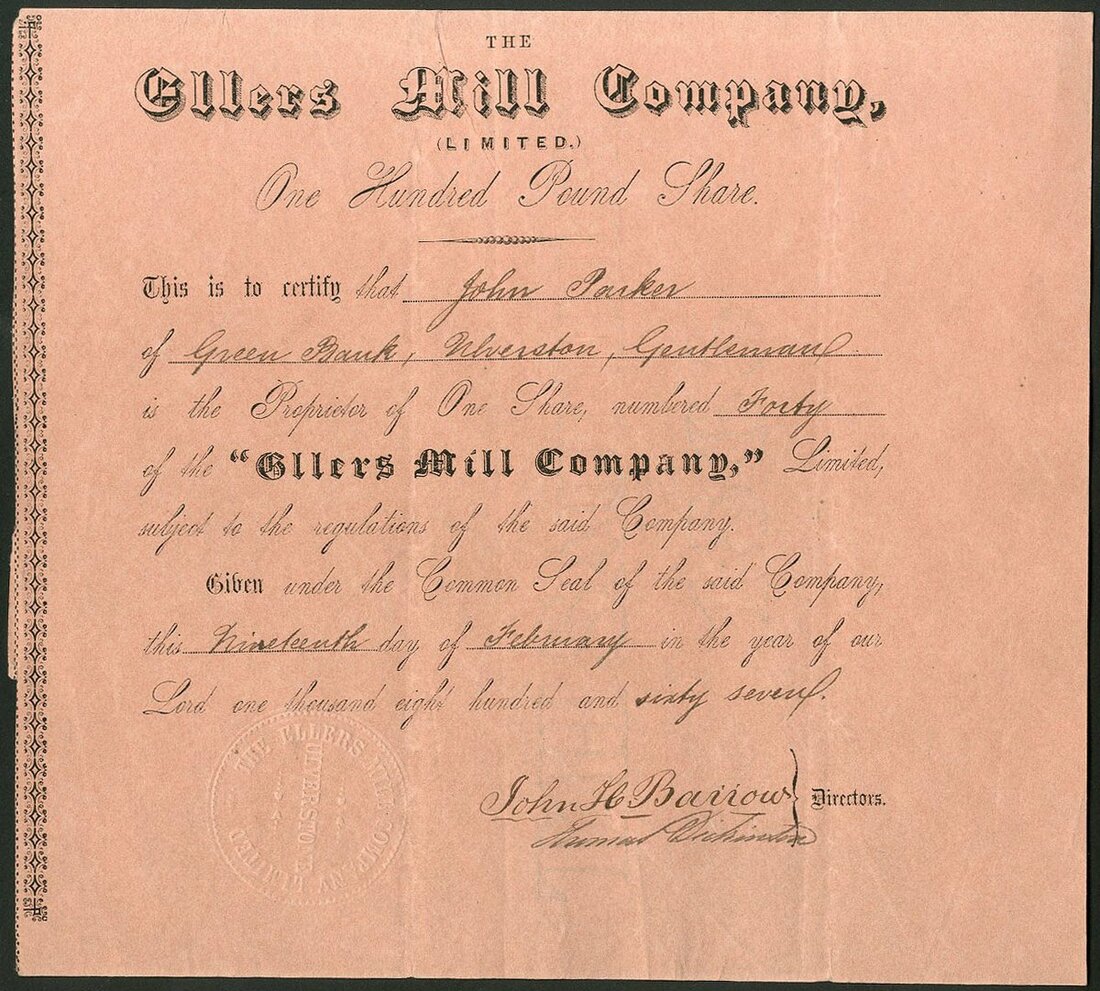 THE
Ellers Mill Company,
(LIMITED.)
One Hundred Pound Share.
This is to certify that John Parker
of Green Bank, Ulverston, Gentleman
is the Proprietor of One Share, numbered Forty
of the "Ellers Mill Company," Limited,
subject to the regulations of the said Company.
Given under the Common Seal of the said Company,
this Nineteenth day of February in the year of our
Lord one thousand eight hundred and sixty seven.
THE ELLERS MILL COMPANY LIMITED
John H Barrow
Directors.
Thomas Dickinson